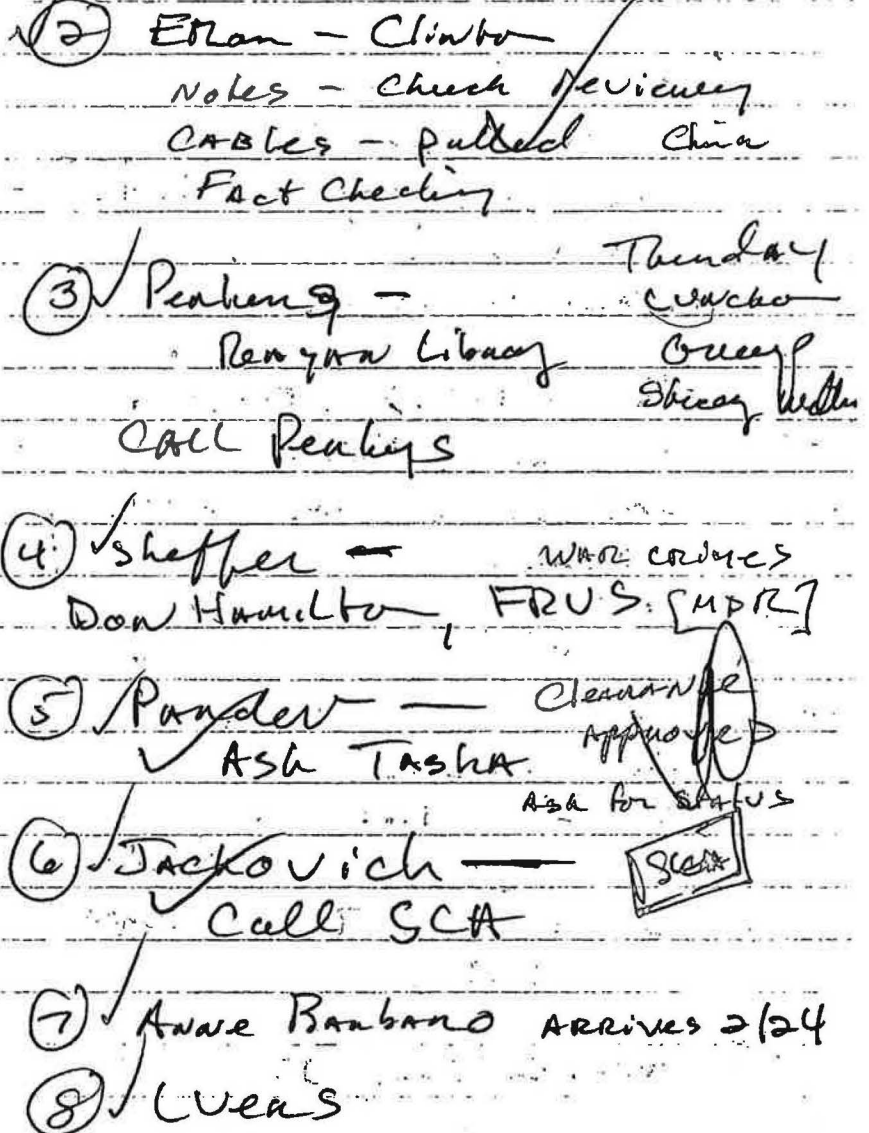 ② Ethan - Clinton
Notes - Check Reviewing
CABLES - pulled China
FAct Checking
③ Perkins - Thursday
Reagan Library Lunch
CALL Perkins
④ Sheffer - WAR CRIMES
Don Hamilton, FRUS. [MDR]
⑤ Pardew — Clearance
Approved
ASk TASkA
Ask for STATUS
⑥ JACKOVich —
Call SCA
⑦ Anne BARbARO ARRIVES 2/24
⑧ Lucas